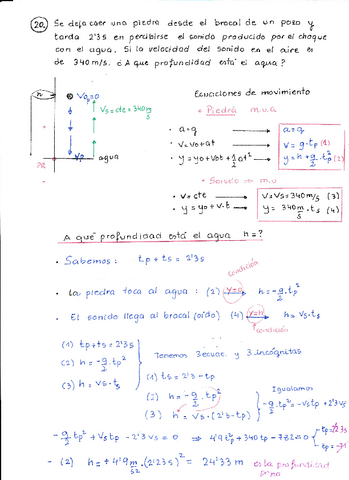 20. Se deja caer una piedra desde el brocal de un pozo y
tarda 2'3s en percibirse el sonido producido por el choque
con el agua. Si la velocidad del sonido en el aire es
de 340 m/s. ¿A que profundidad está el agua?
h
V₀=0
Vs = cte = 340 m/s
Vp
agua
Ecuaciones de movimiento
• Piedra m.u.a
• a=g → a=g
• V=V₀+at → V = g·tp (1)
• y=y₀+V₀t+1/2at² → y=h+g/2·tp² (2)
• Sonido → m.u
• V=cte → V=Vs=340m/s (3)
• y=y₀+V·t → y= 340 m/s·ts (4)
A qué profundidad está el agua h=?
• Sabemos: tp+ts=2'3s
condición
• La piedra toca al agua: (2) y=0 → h=-g/2·tp²
• El sonido llega al brocal (oído) (4) y=h → h=Vs·ts
condición
(1) tp+ts=2'3s
(2) h=-g/2·tp²
(3) h=Vs·ts
Tenemos 3 ecuac. y 3 incógnitas
(1) ts=2'3-tp
(2) h=-g/2·tp²
(3) h=Vs·(2'3-tp)
Igualamos
-g/2·tp²=-Vstp+2'3Vs
-g/2tp²+Vstp-2'3Vs=0 ⇒ 4'9tp²+340tp-782=0
- (2) h=+4'9 m/s²·(2'23s)²= 24'33 m es la profundidad